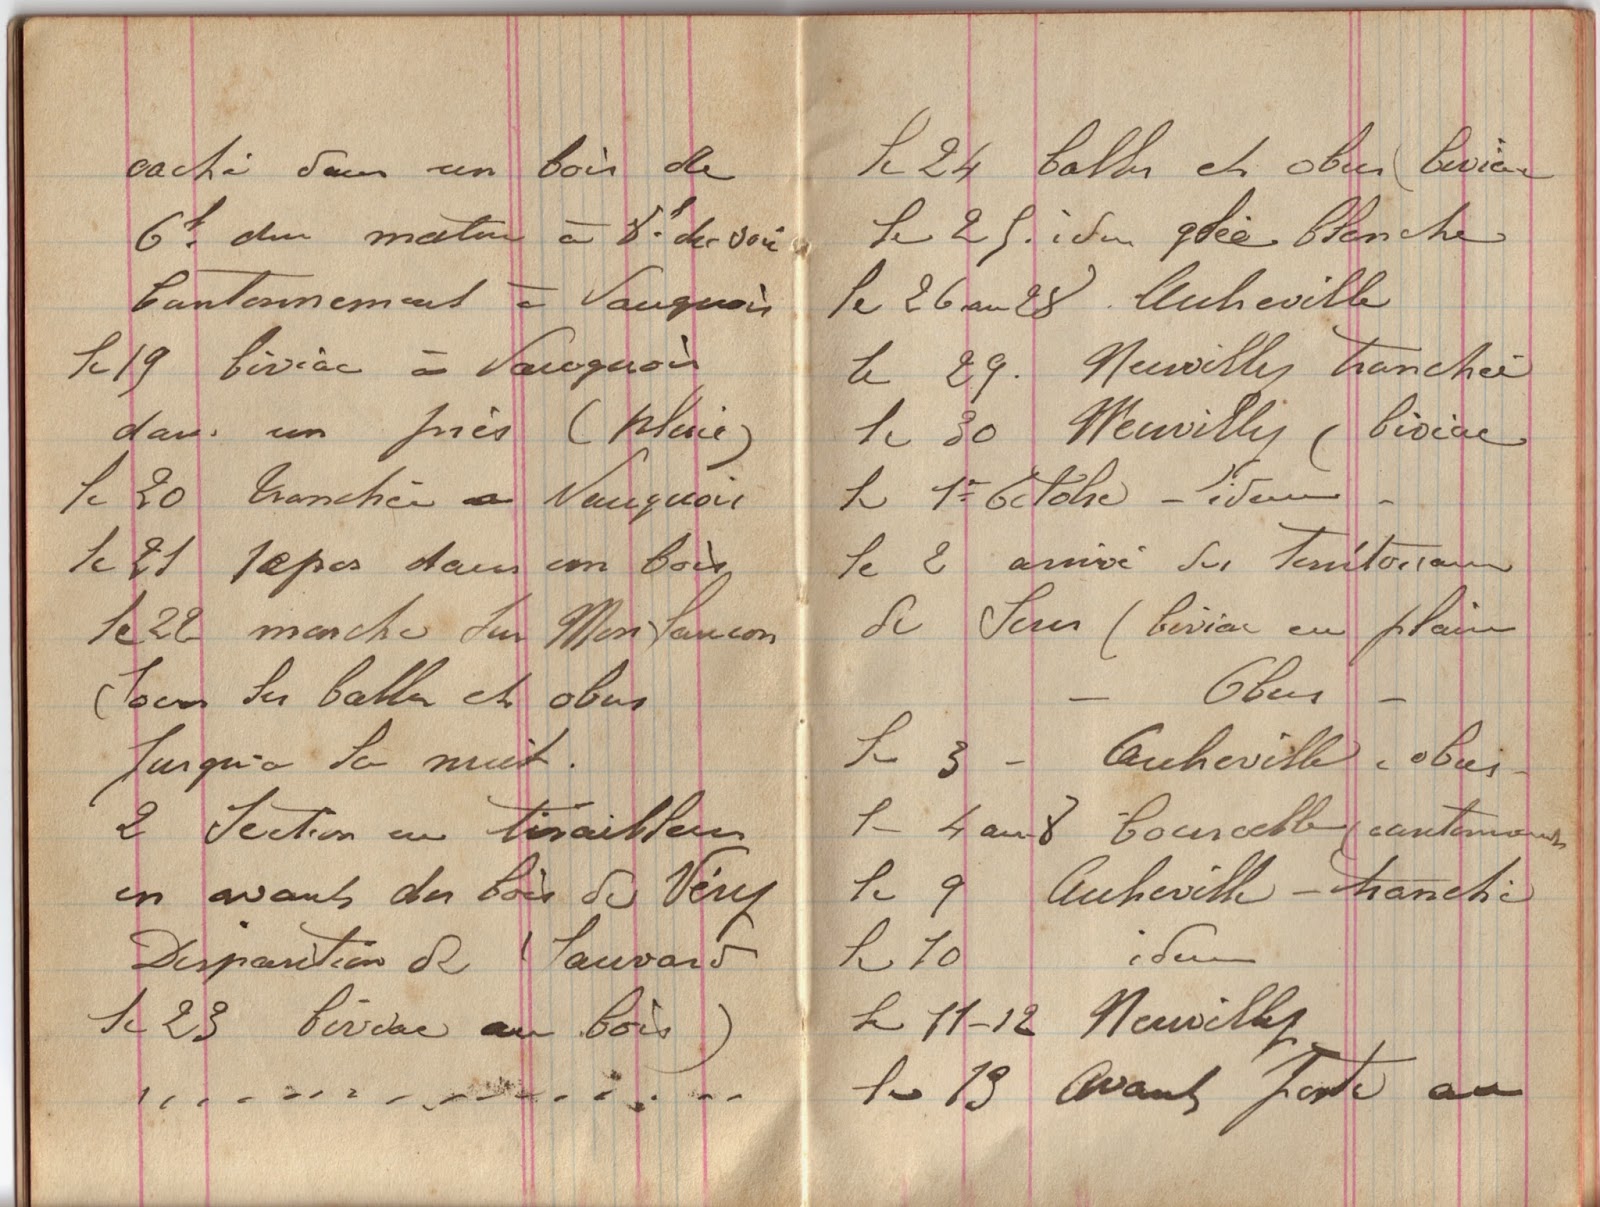 caché dans un bois de
6h. du matin à 8h. du soir
Cantonnement à Vauquois
le 19 biviac à Vauquois
dans un près (pluie)
le 20 tranchée a Vauquois
le 21 repos dans un bois
le 22 marche sur Monfaucon
(sous les balles et obus
jusqu'a la nuit.
2 Section en tirailleurs
en avant des bois de Véry
Disparition de Sauvard
le 23 biviac au bois)
le 24 balles et obus (biviac
le 25. idem gelée blanche
le 26 au 28. Auheville
le 29. Neuvilly tranchée
le 30 Neuvilly (biviac
le 1er Octobre - idem -
le 2 arrivé des territoriaux
de (biviac en plaine
- Obus -
le 3 - Auheville, obus -
le 4 au 8 Courcelle (cantonnement
le 9 Auheville - tranché
le 10 idem
le 11-12 Neuvilly
le 13 Avant poste au